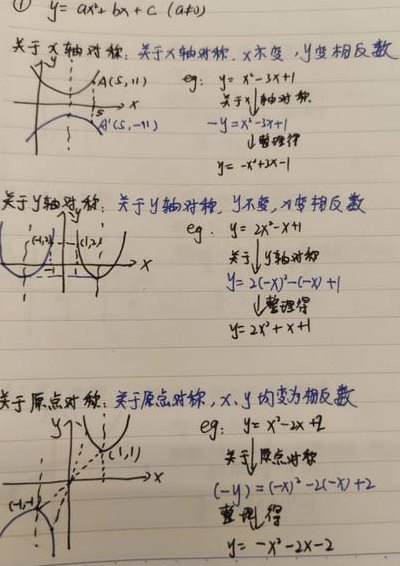 ① y = ax²+bx+c (a≠0)
关于x轴对称：关于x轴对称，x不变，y变相反数
y
A(5,11)
x
5
A'(5,-11)
eg: y= x²-3x+1
关于x轴对称
-y=x²-3x+1
整理得
y= -x²+3x-1
关于y轴对称：关于y轴对称，y不变，x变相反数
y
(-1,2)
(1,2)
-1
x
eg: y= 2x²-x+1
关于y轴对称
y= 2(-x)²-(-x)+1
整理得
y= 2x²+x+1
关于原点对称：关于原点对称，x、y均变为相反数
y
(1,1)
x
(-1,-1)
eg: y= x²-2x+2
关于原点对称
(-y)=(-x)²-2(-x)+2
整理得
y= -x²-2x-2